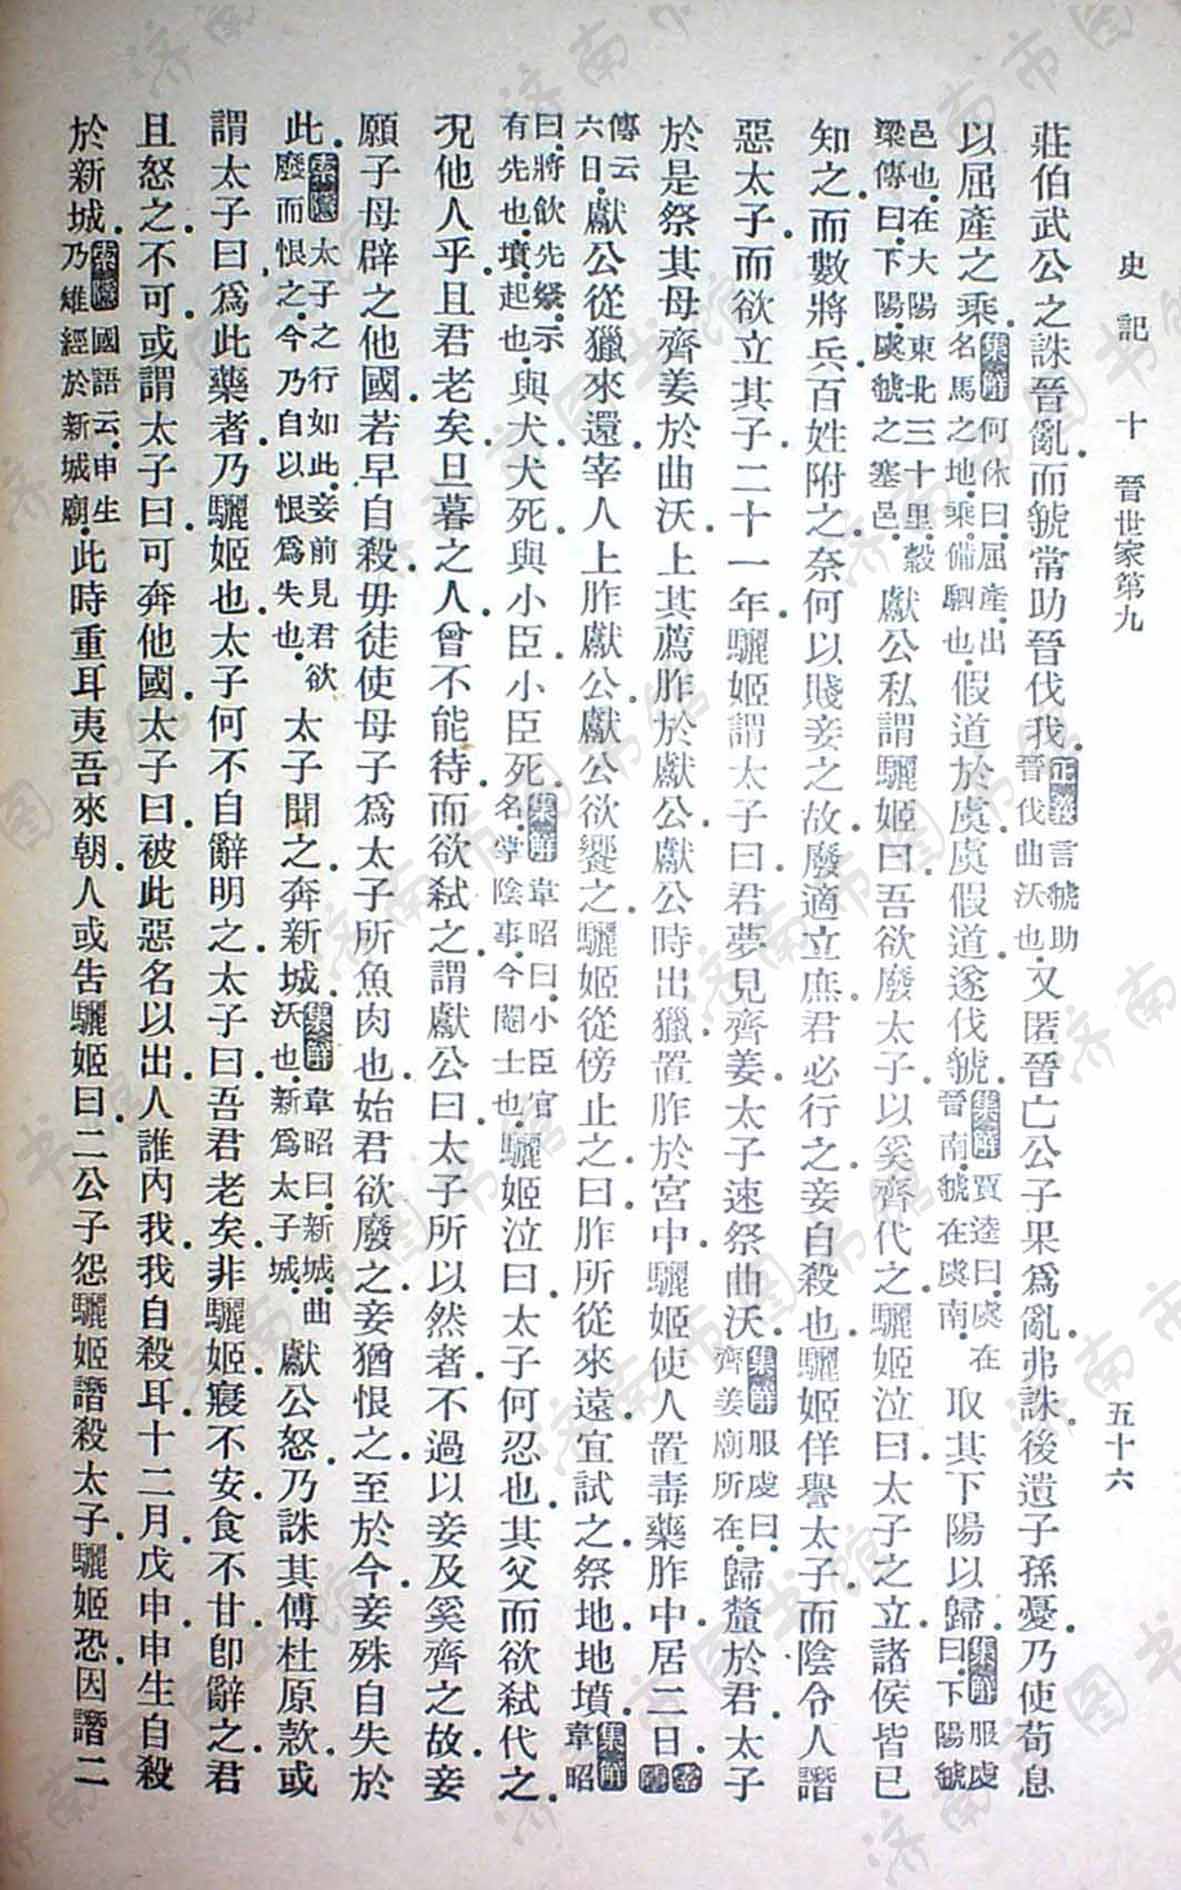 史記 十 晉世家第九 五十六
莊伯武公之誅晉亂.而虢常助晉伐我.正義言虢助晉伐曲沃也.又匿晉亡公子果爲亂.弗誅.後遺子孫憂.乃使荀息
以屈產之乘.集解何休曰.屈產.出名馬之地.乘.備駟也.假道於虞.虞假道.遂伐虢.集解賈逵曰.虞在晉南.虢在虞南.取其下陽以歸.集解服虔曰.下陽.虢
邑也.在大陽東北三十里.穀梁傳曰.下陽.虞虢之塞邑.獻公私謂驪姬曰.吾欲廢太子.以奚齊代之.驪姬泣曰.太子之立.諸侯皆已
知之.而數將兵.百姓附之.奈何以賤妾之故.廢適立庶.君必行之.妾自殺也.驪姬佯譽太子.而陰令人譖
惡太子.而欲立其子.二十一年.驪姬謂太子曰.君夢見齊姜.太子速祭曲沃.集解服虔曰.齊姜廟所在.歸釐於君.太子
於是祭其母齊姜於曲沃.上其薦胙於獻公.獻公時出獵.置胙於宮中.驪姬使人置毒藥胙中.居二日.索隱
傳云六日.獻公從獵來還.宰人上胙獻公.獻公欲饗之.驪姬從傍止之.曰.胙所從來遠.宜試之.祭地.地墳.集解韋昭
曰.將飲先祭.示有先也.墳.起也.與犬.犬死.與小臣.小臣死.集解韋昭曰.小臣.官名.掌陰事.今閹士也.驪姬泣曰.太子何忍也.其父而欲弒代之.
況他人乎.且君老矣.旦暮之人.曾不能待.而欲弒之.謂獻公曰.太子所以然者.不過以妾及奚齊之故.妾
願子母辟之他國.若早自殺.毋徒使母子爲太子所魚肉也.始君欲廢之.妾猶恨之.至於今.妾殊自失於
此.索隱太子之行如此.妾前見君欲廢而恨之.今乃自以恨爲失也.太子聞之.奔新城.集解韋昭曰.新城.曲沃也.新爲太子城.獻公怒.乃誅其傅杜原款.或
謂太子曰.爲此藥者.乃驪姬也.太子何不自辭明之.太子曰.吾君老矣.非驪姬.寢不安.食不甘.卽辭之.君
且怒之.不可.或謂太子曰.可奔他國.太子曰.被此惡名以出.人誰內我.我自殺耳.十二月.戊申.申生自殺
於新城.索隱國語云.申生乃雉經於新城廟.此時重耳夷吾來朝.人或告驪姬曰.二公子怨驪姬譖殺太子.驪姬恐.因譖二